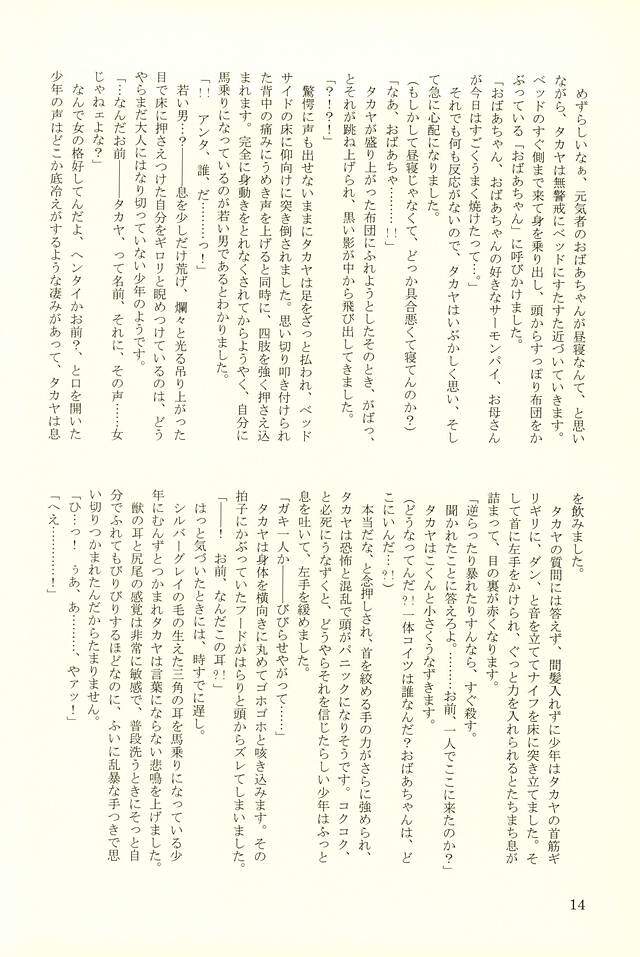 めずらしいなぁ、元気者のおばあちゃんが昼寝なんて、と思い
ながら、タカヤは無警戒にベッドにすたすた近づいていきます。
ベッドのすぐ側まで来て身を乗り出し、頭からすっぽり布団をか
ぶっている「おばあちゃん」に呼びかけました。
「おばあちゃん、おばあちゃんの好きなサーモンパイ、お母さん
が今日はすごくうまく焼けたって…。」
それでも何も反応がないので、タカヤはいぶかしく思い、そし
て急に心配になりました。
(もしかして昼寝じゃなくて、どっか具合悪くて寝てんのか?)
「なあ、おばあちゃ………!!」
タカヤが盛り上がった布団にふれようとしたそのとき、がばっ、
とそれが跳ね上げられ、黒い影が中から飛び出してきました。
「?!?!」
驚愕に声も出せないままにタカヤは足をざっと払われ、ベッド
サイドの床に仰向けに突き倒されました。思い切り叩き付けられ
た背中の痛みにうめき声を上げると同時に、四肢を強く押さえ込
まれます。完全に身動きをとれなくされてからようやく、自分に
馬乗りになっているのが若い男であるとわかりました。
「!! アンタ、誰、だ………っ!」
若い男…?――息を少しだけ荒げ、爛々と光る吊り上がった
目で床に押さえつけた自分をギロリと睨めつけているのは、どう
やらまだ大人にはなり切っていない少年のようです。
「…なんだお前――タカヤ、って名前、それに、その声……女
じゃねェよな?」
なんで女の格好してんだよ、ヘンタイかお前?、と口を開いた
少年の声はどこか底冷えがするような凄みがあって、タカヤは息
を飲みました。
タカヤの質問には答えず、間髪入れずに少年はタカヤの首筋ギ
リギリに、ダン、と音を立ててナイフを床に突き立てました。そ
して首に左手をかけられ、ぐっと力を入れられるとたちまち息が
詰まって、目の裏が赤くなります。
「逆らったり暴れたりすんなら、すぐ殺す。
聞かれたことに答えろよ。………お前、一人でここに来たのか?」
タカヤはこくんと小さくうなずきます。
(どうなってんだ?!一体コイツは誰なんだ?おばあちゃんは、ど
こにいんだ…!)
本当だな、と念押しされ、首を絞める手の力がさらに強められ、
タカヤは恐怖と混乱で頭がパニックになりそうです。コクコク、
と必死にうなずくと、どうやらそれを信じたらしい少年はふっと
息を吐いて、左手を緩めました。
「ガキ一人か――びびらせやがって……」
タカヤは身体を横向きに丸めてゴホゴホと咳き込みます。その
拍子にかぶっていたフードがはらりと頭からズレてしまいました。
「――! お前、なんだこの耳?!」
はっと気づいたときには、時すでに遅し。
シルバーグレイの毛の生えた三角の耳を馬乗りになっている少
年にむんずとつかまれタカヤは言葉にならない悲鳴を上げました。
獣の耳と尻尾の感覚は非常に敏感で、普段洗うときにそっと自
分でふれてもびりびりするほどなのに、ふいに乱暴な手つきで思
い切りつかまれたんだからたまりません。
「ひ…っ! ぅあ、あ………、やァッ!」
「へえ…………!」
14